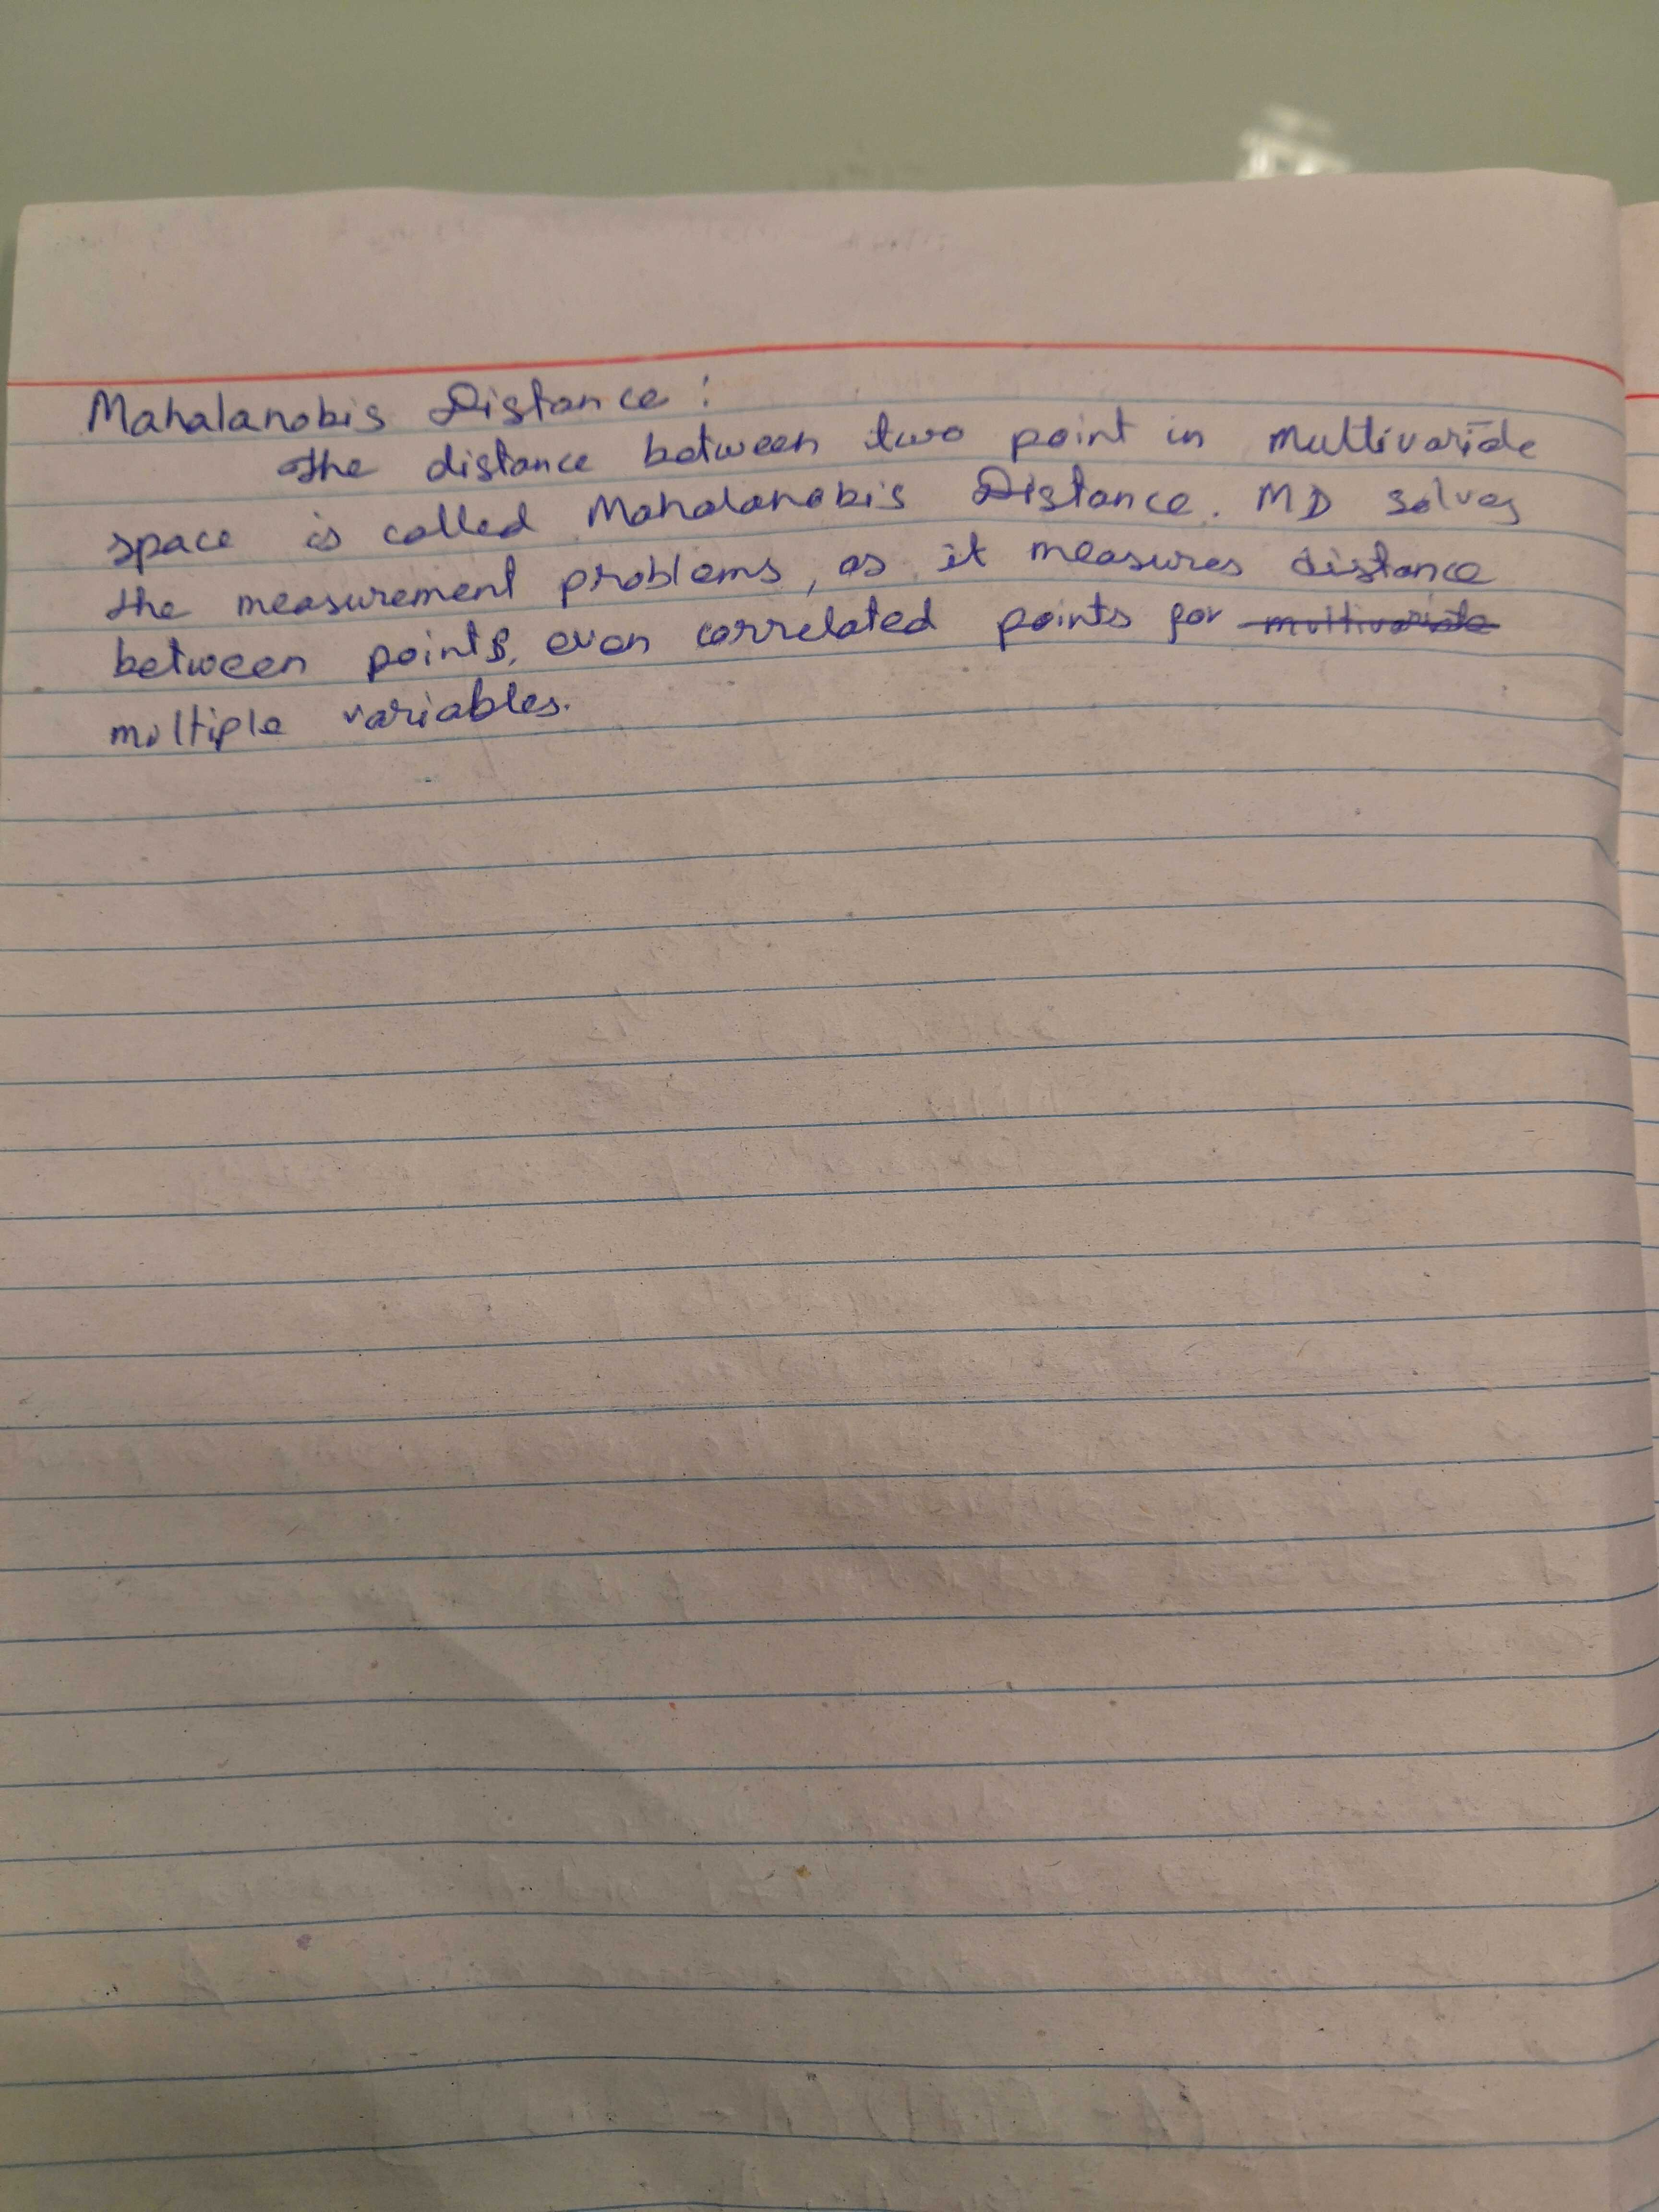 Mahalanobis Distance :
The distance between two point in multivariate
space is called Mahalanobis Distance. MD solves
the measurement problems, as it measures distance
between points, even correlated points for ~~multivariate~~
multiple variables.